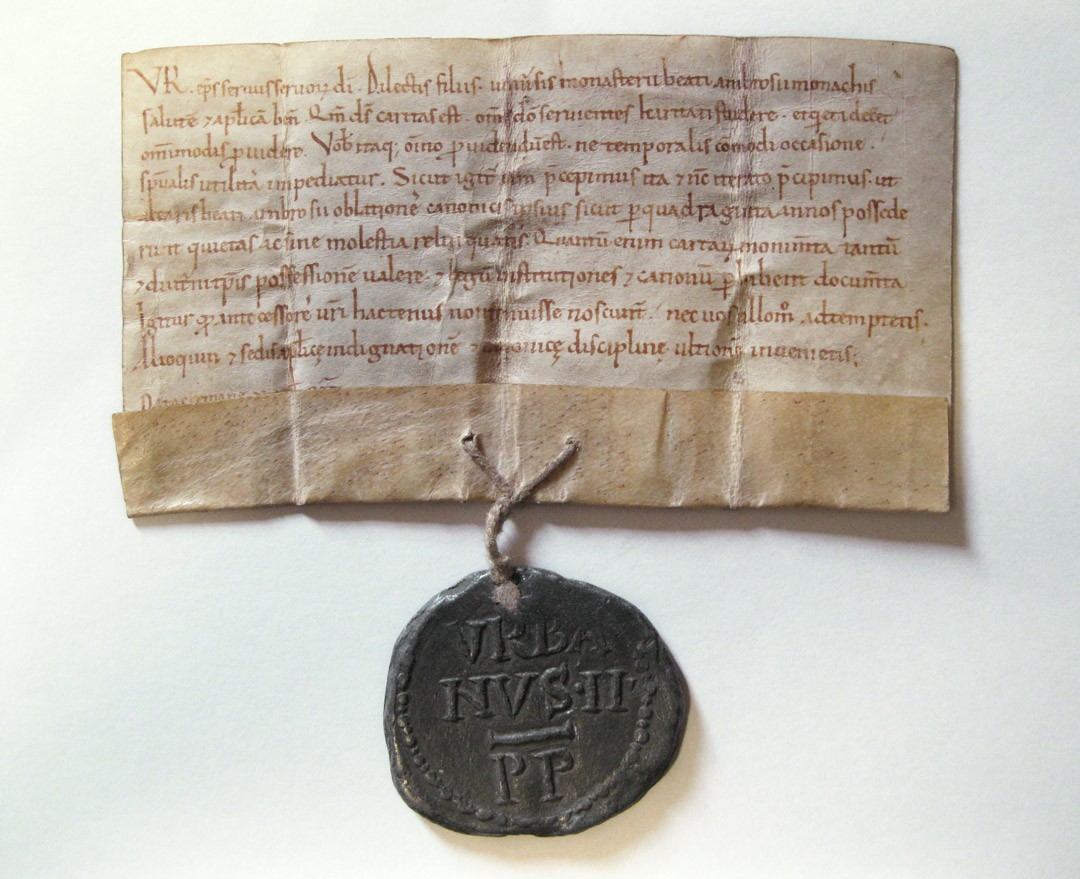 VR. ep̄s seruus seruoꝝ dī. Dilectis filiis. uniũsis monasterii beati ambrosii monachis
salutē ⁊ ap̄licā ben̄. Qm̄ ds̄ caritas est. om̄s dō seruientes karitati studere.
om̄imodis prouidere. Vob̄ itaq; oīno prouidendū est. ne temporalis comodi occasione.
sp̄ualis utilitas impediatur. Sicut igit̄ iam p̄cepimus ita ⁊ nc̄ iterato p̄cipimus. ut
altaris beati ambrosii oblationē canonicis ipsius sicut per quadraginta annos possede
runt quietas ac sine molestia relinquatis. Quantū enim cartaꝝ monum̄ta tantū
⁊ diut̄ni tp̄ris possessionē ualere. ⁊ legū institutiones ⁊ canonū perhibent docum̄ta.
Igitur antecessores ur̄i hactenus mouisse noscunt̄. nec uos ullom̊. adtemptetis.
Alioquin ⁊ sedis ap̄licę indignationē ⁊ canonicę disciplinę ultionē inuenietis;
VRBA
NVS·II·
PP